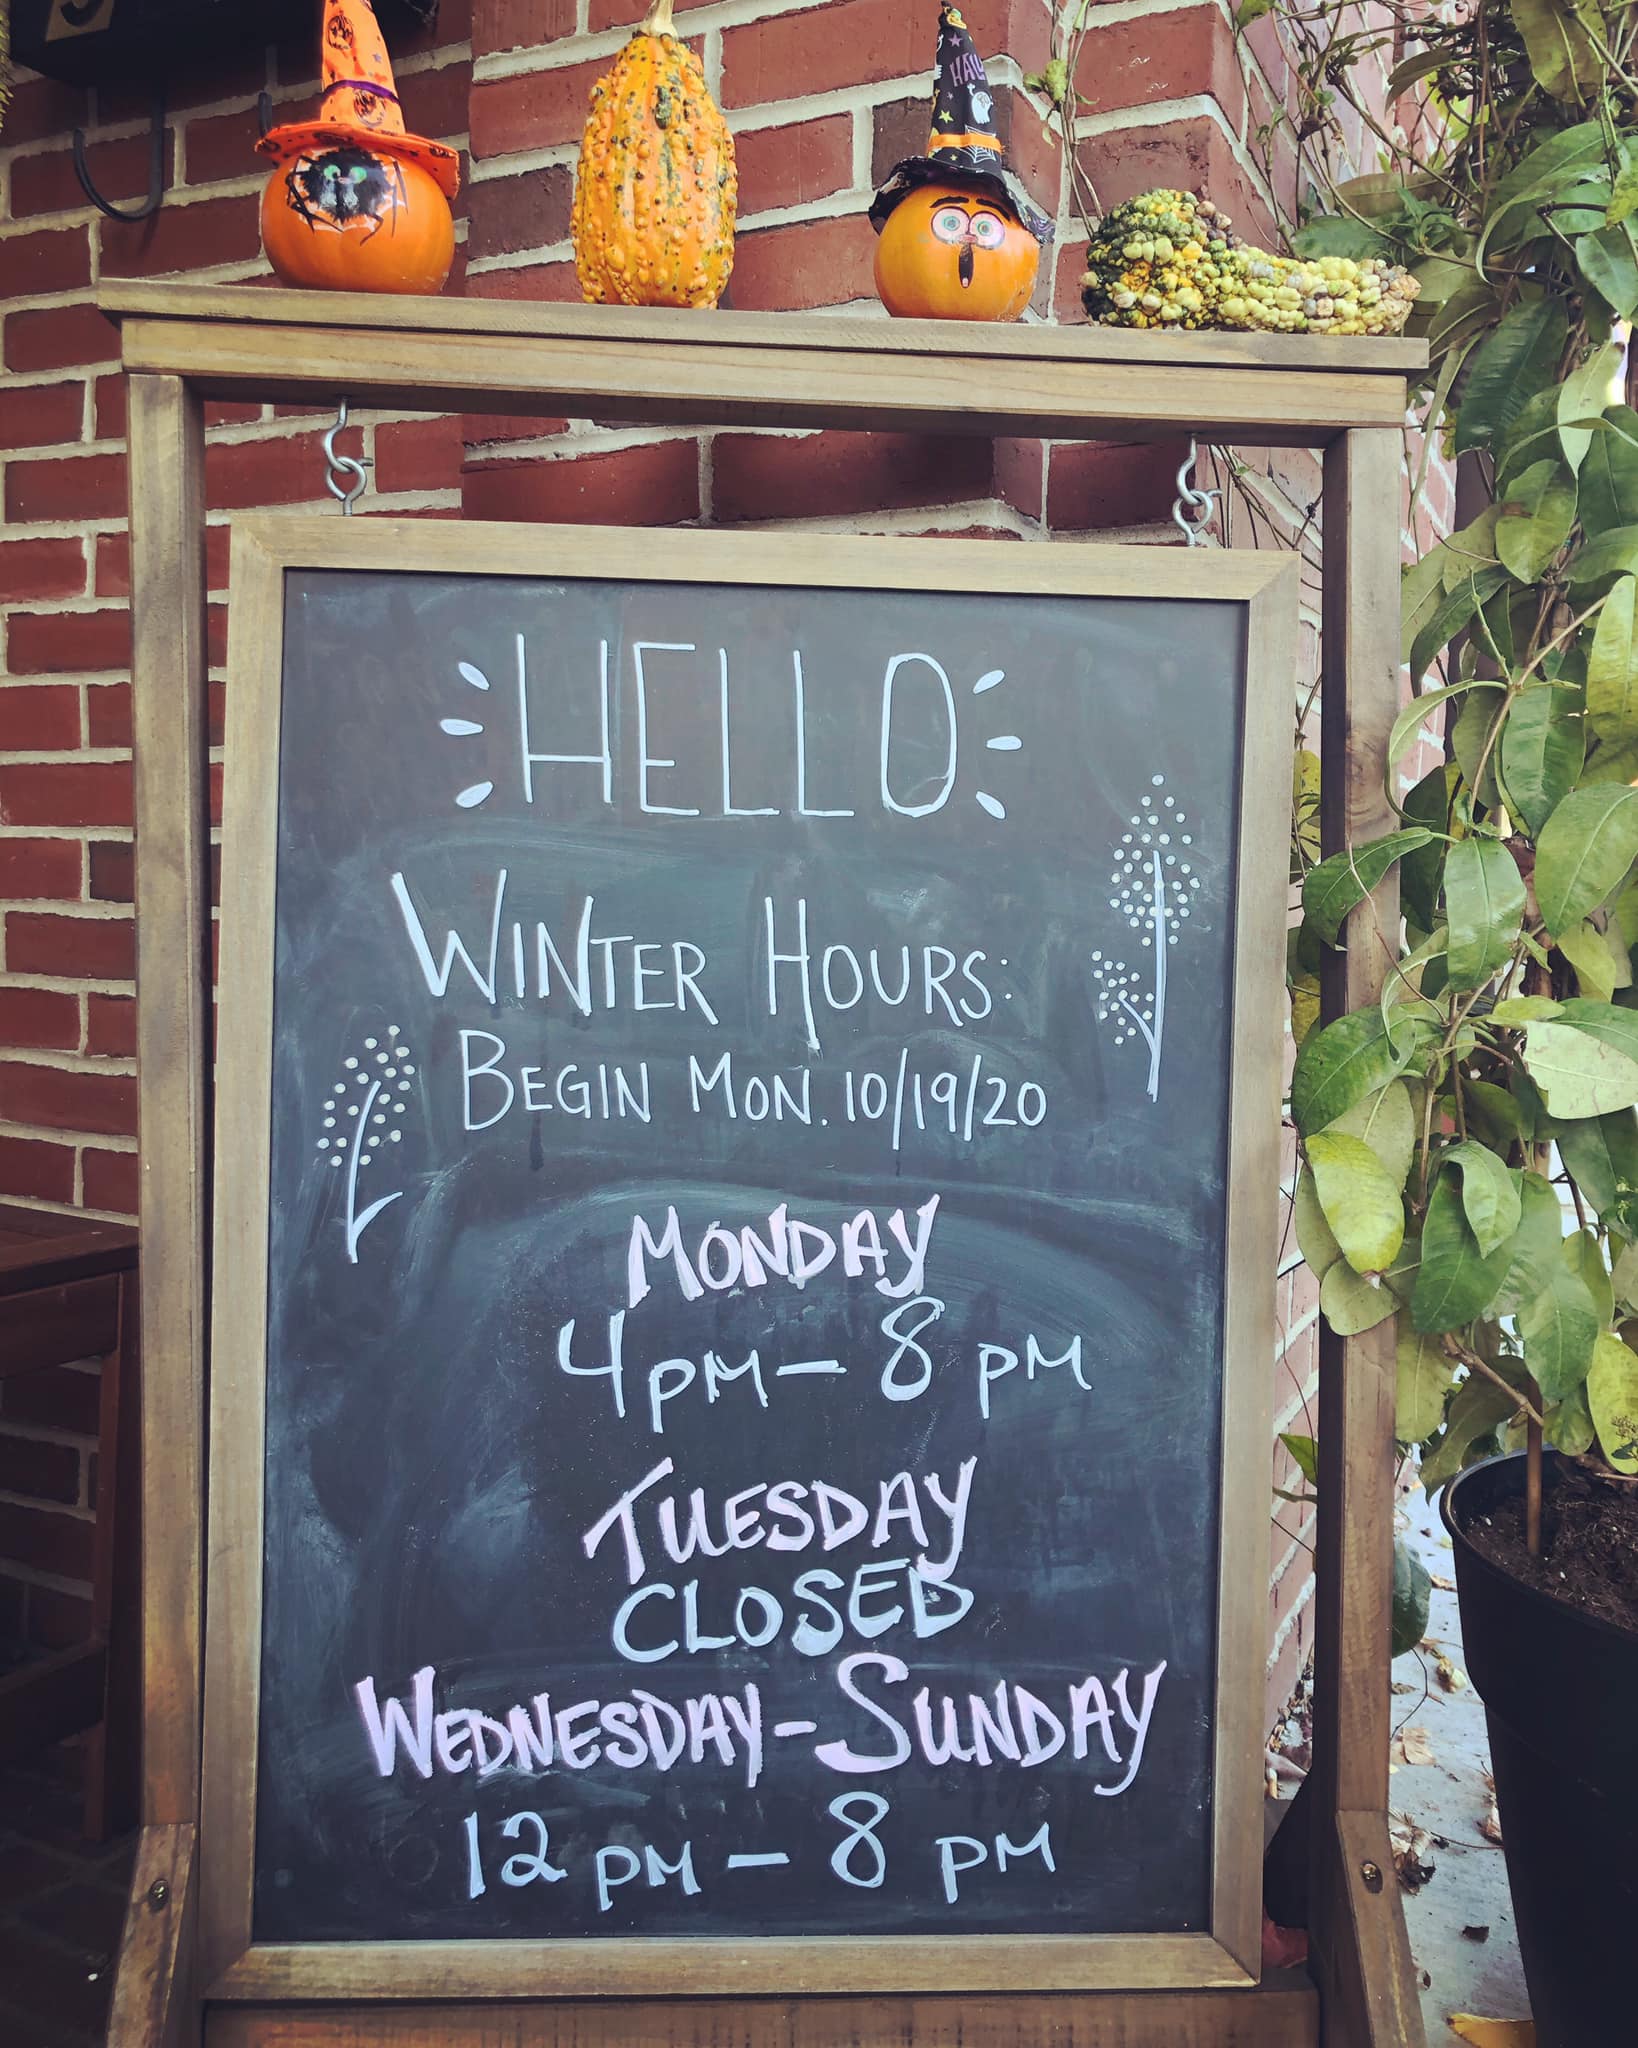 HALL
HELLO
WINTER HOURS:
BEGIN MON. 10/19/20
MONDAY
4PM – 8 PM
TUESDAY
CLOSED
WEDNESDAY – SUNDAY
12 PM – 8 PM